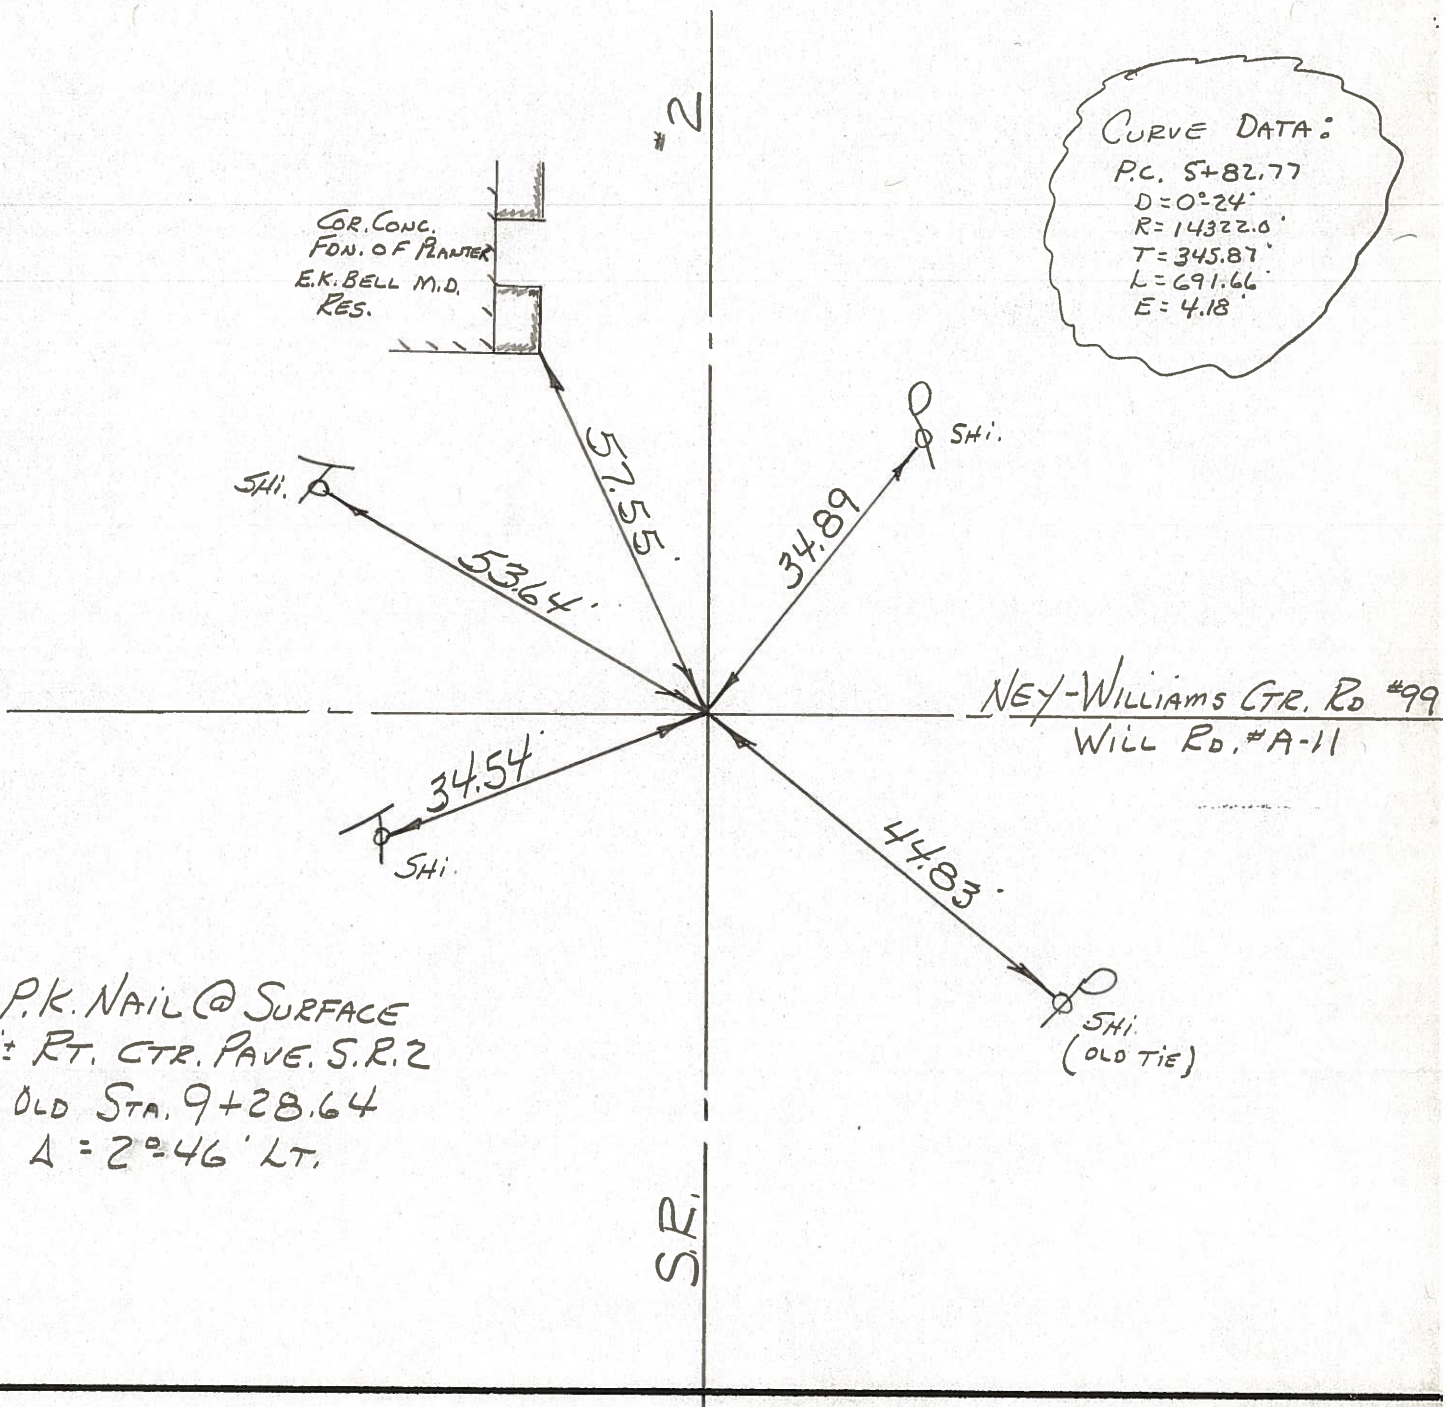 #2
CURVE DATA:
P.C. 5+82.77
D=0°-24'
R=14322.0'
T=345.87'
L=691.66'
E=4.18'
COR. CONC.
FDN. OF PLANTER
E.K. BELL M.D.
RES.
SHi.
SHi.
57.55'
53.64'
34.89
NEY-WILLIAMS CTR. RD #99
WILL RD. #A-11
34.54'
SHi.
44.83'
SHi.
(OLD TiE)
P.K. NAiL @ SURFACE
± RT. CTR. PAVE. S.R.2
OLD STA. 9+28.64
Δ = 2°-46' LT.
S.R.